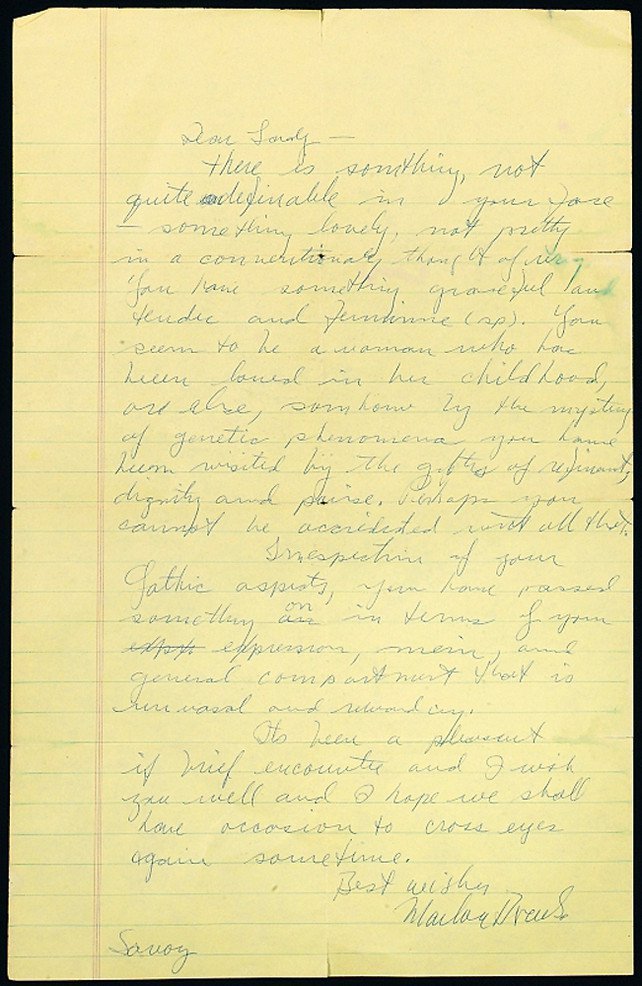 Dear Lady —
there is somthing, not
quite definable in your face
— something lovely, not pretty
in a conventionaly thought of way
You have something graceful and
tender and feminine (sp). You
seem to be a woman who has
been loved in her childhood,
or else, somhow by the mystery
of genetic phenomena you have
been visited by the gifts of refinment,
dignity and poise. Perhaps you
cannot be accredited with all that.
Irrespective of your
Gothic aspects, you have passed
somethg on in terms of your
expression, mein, and
general compartment that is
unusual and rewarding.
Its been a pleasant
if brief encounter and I wish
you well and I hope we shall
have occasion to cross eyes
again sometime.
Best wishes
Marlon Brando
Savoy